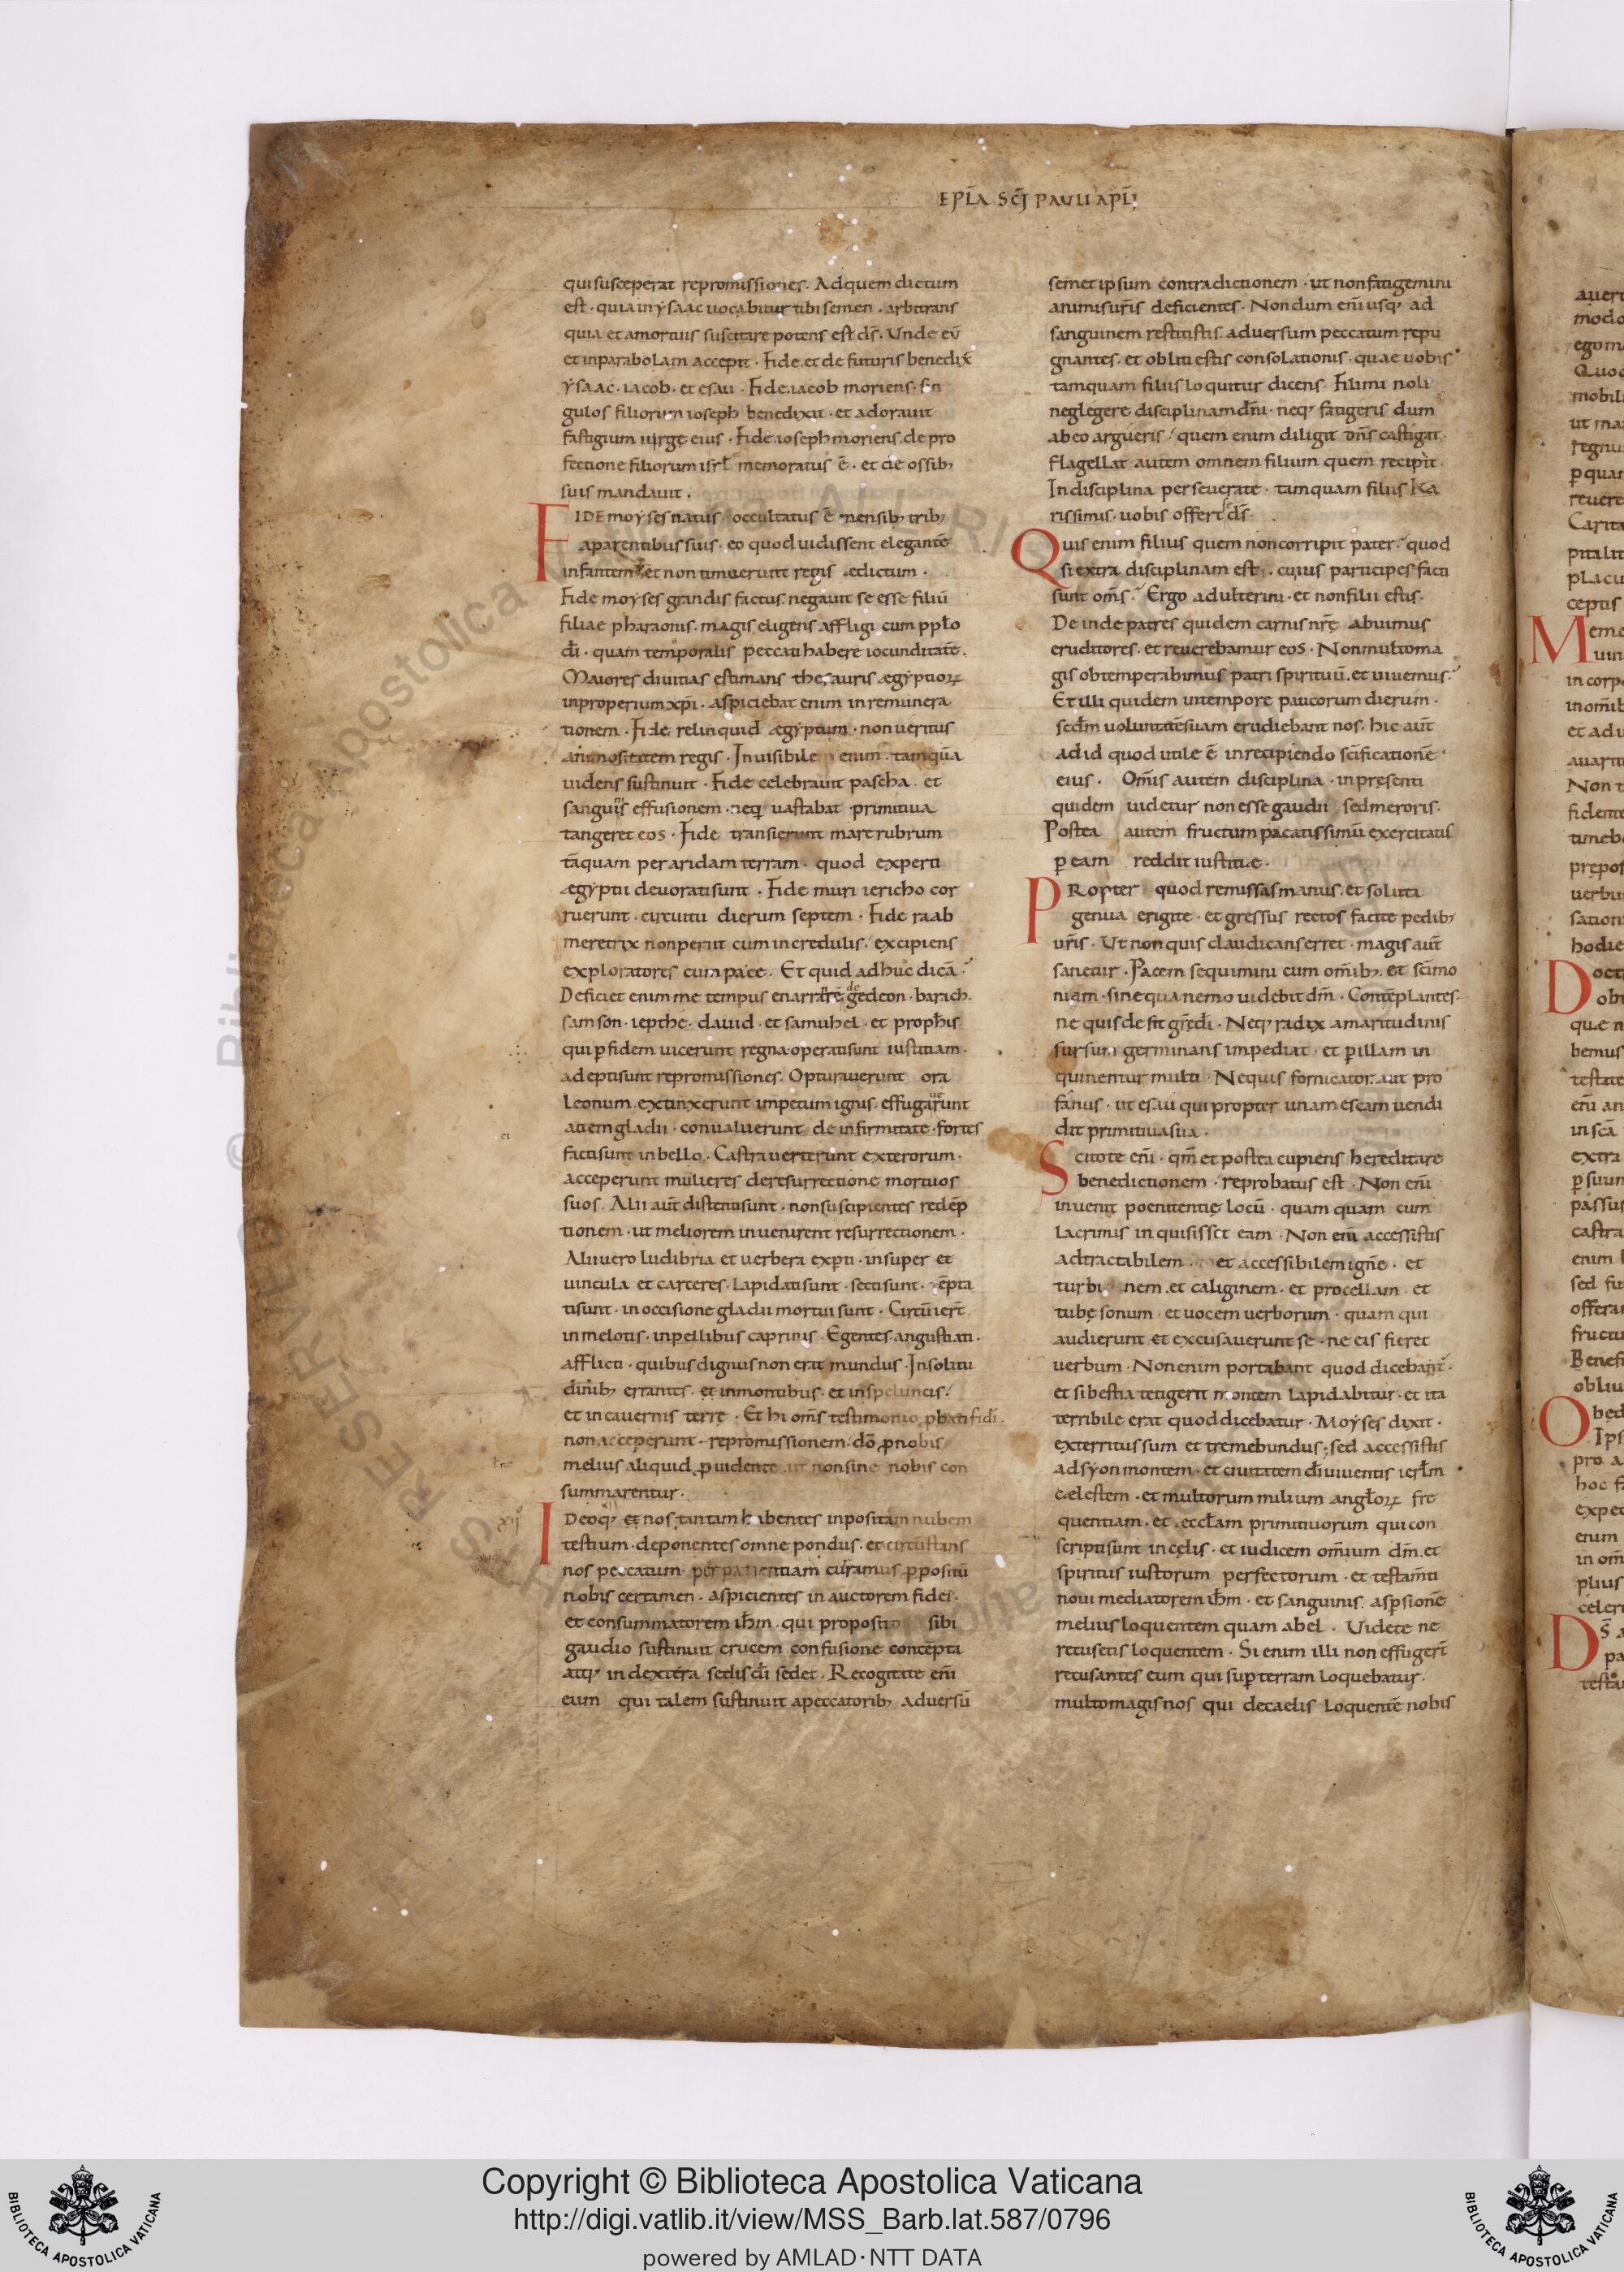 EPL̄A SC̄I PAULI APL̄I
qui susceperat repromissiones. Ad quem dictum
est · quia in ysaac uocabitur tibi semen · arbitrans
quia et a mortuis suscitare potens est ds̄ · Unde eū
et in parabolam accepit · Fide et de futuris benedix̄
ysaac · iacob · et esau · Fide iacob moriens · sin
gulos filiorum ioseph benedixit · et adorauit
fastigium uirgę eius · Fide ioseph moriens de pro
fectione filiorum isrl̄ memoratus ē · et de ossib;
suis mandauit ·
FIDE moyses natus occultatus ē mensib; trib;
a parentibus suis · eo quod uidissent elegantē
infantem et non timuerunt regis edictum ·
Fide moyses grandis factus negauit se esse filiū
filiae pharaonis · magis eligens affligi cum ppl̄o
dī · quam temporalis peccati habere iocunditatē ·
Maiores diuitias estimans thesauris ægyptioꝝ
inproperium xp̄i · aspiciebat enim in remunera
tionem · Fide relinquid ægyptum · non ueritus
animositatem regis · Inuisibile enim · tamquā
uidens sustinuit · Fide celebrauit pascha et
sanguis effusionem · neq; uastabat primitiua
tangeret eos · Fide transierunt mare rubrum
tāquam per aridam terram · quod experti
ægyptii deuorati sunt · Fide muri iericho cor
ruerunt · circuitu dierum septem · Fide raab
meretrix non periit cum incredulis · excipiens
exploratores cum pace · Et quid adhuc dicā ·
Deficiet enim me tempus enarrare de gedeon · barach ·
samson · iepthe · dauid · et samuhel · et proph̄is
qui ꝑ fidem uicerunt regna operati sunt iustitiam ·
adepti sunt repromissiones · Opturauerunt ora
leonum · extinxerunt impetum ignis · effugarunt
aciem gladii · conualuerunt de infirmitate · fortes
facti sunt in bello · Castra uerterunt exterorum ·
acceperunt mulieres de resurrectione mortuos
suos · Alii aut̄ distenti sunt · non suscipientes redēp
tionem · ut meliorem inuenirent resurrectionem ·
Alii uero ludibria et uerbera exꝑti · insuper et
uincula et carceres · lapidati sunt · secti sunt · tēpta
ti sunt · in occisione gladii mortui sunt · Circū ier̄t
in melotis · in pellibus caprinis · Egentes angustiati ·
afflicti · quibus dignus non erat mundus · In solitu
dinib; errantes · et in montibus · et in speluncis ·
et in cauernis terrę · Et hi om̄s testimonio ꝓbati fidī
non acceperunt · repromissionem dō ꝓ nobis
melius aliquid ꝓuidente ut non sine nobis con
summarentur ·
IDeoq; et nos tantam habentes inpositam nubem
testium · deponentes omne pondus · et circūstans
nos peccatum · per patientiam curramus ꝓpositū
nobis certamen · aspicientes in auctorem fidei ·
et consummatorem ih̄m · qui proposito sibi
gaudio sustinuit crucem confusione contēpta
atq; in dextera sedis dī sedet · Recogitate eni̅
eum qui talem sustinuit a peccatorib; aduersū
semet ipsum contradictionem · ut non fatigemini
animis ur̄is deficientes · Nondum eni̅ usq; ad
sanguinem restitistis aduersum peccatum repu
gnantes · et obliti estis consolationis · quae uobis
tamquam filiis loquitur dicens · Fili mi noli
neglegere disciplinam dn̄i · neq; fatigeris dum
ab eo argueris · quem enim diligit dn̄s castigat ·
flagellat autem omnem filium quem recipit ·
In disciplina perseuerate · tamquam filiis ka
rissimis · uobis offert se ds̄ ·
Quis enim filius quem non corripit pater · quod
si extra disciplinam estis · cuius participes facti
sunt om̄s · Ergo adulterini · et non filii estis ·
Deinde patres quidem carnis nr̄ę abuimus
eruditores · et reuerebamur eos · Non multo ma
gis obtemperabimus patri spirituū · et uiuemus ·
Et illi quidem in tempore paucorum dierum ·
sed̄m uoluntatē suam erudiebant nos · hic aut̄
ad id quod utile ē in recipiendo sc̄ificationē
eius · Om̄is autem disciplina · in pręsenti
quidem uidetur non esse gaudii sed meroris ·
Postea autem fructum pacatissimū exercitatis
ꝑ eam reddit iustitiæ ·
PRopter quod remissas manus · et soluta
genua erigite · et gressus rectos facite pedib;
ur̄is · Ut non quis claudicans erret · magis aut̄
sanetur · Pacem sequimini cum om̄ib; · et sc̄imo
niam · sine qua nemo uidebit dm̄ · Contēplantes ·
ne quis desit gr̄e dī · Neq; radix amaritudinis
sursum germinans impediat · et ꝑ illam in
quinentur multi · Nequis fornicator aut pro
fanus · ut esau qui propter unam escam uendi
dit primitiua sua ·
Scitote eni̅ · qm̄ et postea cupiens hereditare
benedictionem · reprobatus est · Non eni̅
inuenit poenitentię locū · quam quam cum
lacrimis inquisisset eam · Non eni̅ accessistis
ad tractabilem et accessibilem ignē · et
turbinem et caliginem · et procellam et
tubę sonum · et uocem uerborum · quam qui
audierunt et excusauerunt se · ne eis fieret
uerbum · Non enim portabant quod dicebatur ·
et si bestia tetigerit montem lapidabitur · et ita
terribile erat quod dicebatur · Moyses dixit ·
exterritus sum et tremebundus · sed accessistis
ad syon montem · et ciuitatem dī uiuentis ierl̄m
cælestem · et multorum milium angl̄oꝝ fre
quentiam · et eccl̄am primitiuorum qui con
scripti sunt in cęlis · et iudicem om̄ium dm̄ et
spiritus iustorum perfectorum · et testam̄ti
noui mediatorem ih̄m · et sanguinis aspsionē
melius loquentem quam abel · Uidete ne
recusetis loquentem · Si enim illi non effugert̄
recusantes eum qui suꝑ terram loquebatur ·
multo magis nos qui de caelis loquentē nobis
Copyright © Biblioteca Apostolica Vaticana
http://digi.vatlib.it/view/MSS_Barb.lat.587/0796
powered by AMLAD·NTT DATA
BIBLIOTECA APOSTOLICA VATICANA
BIBLIOTECA APOSTOLICA VATICANA